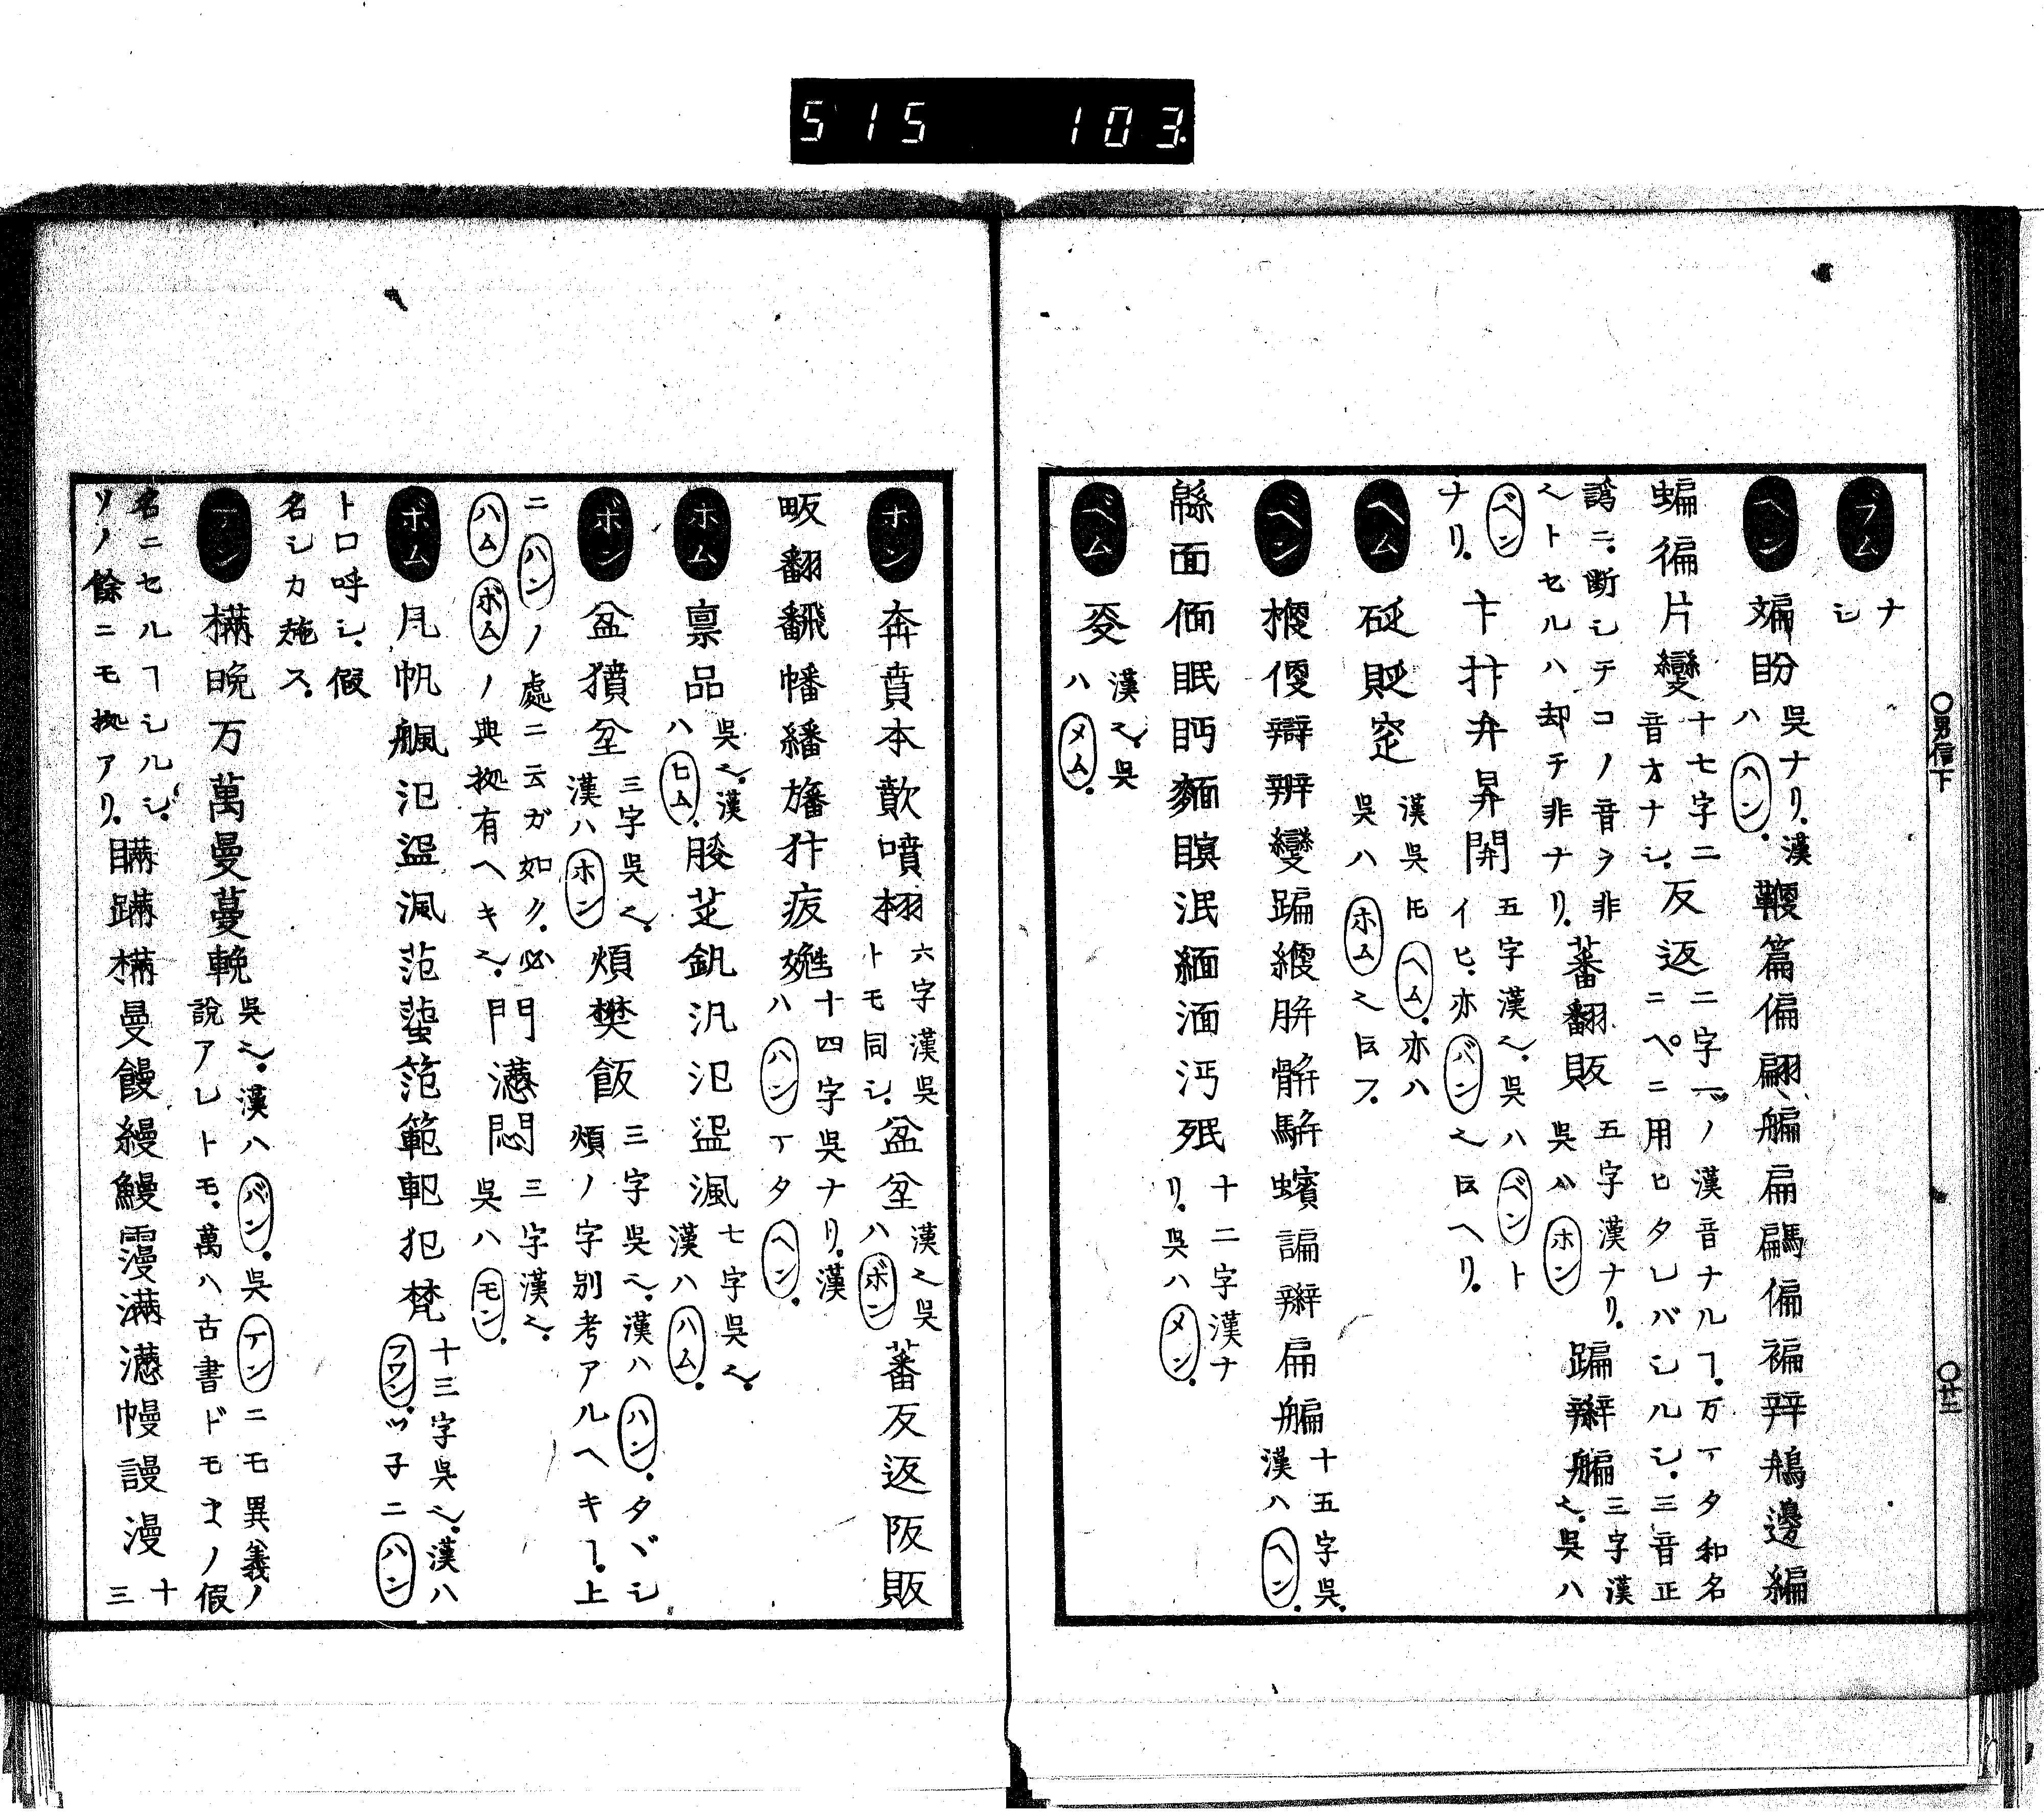 515 103
〇男信下
〇廿三
ブム ナシ
ヘン 㛹盼 呉ナリ漢ハヘン 鞭篇偏翩艑扁騗偏褊辡鴘邊編
蝙徧片變 十七字ニ音オナシ 反返 二字マノ漢音ナルヿ万アタ和名ニペニ用ヒタレバシルシ三音正
謌ニ断シテコノ音ヲ非也トセルハ却チ非ナリ 蕃翻販 五字漢ナリ呉ハホン 蹁辮艑 三字漢也呉ハ
ベンナリ 卞抃弁昇開 五字漢也呉ハベントイヒ亦バン也ト云ヘリ
ヘム 砭貶窆 漢呉ﾄﾓヘム亦ハ呉ハホム也ト云フ
ベン 楩便辯辨變蹁緶胼骿騈蠙諞辮扁艑 十五字呉漢ハヘン
緜面偭眠眄麵瞑泯緬湎沔殙 十二字漢ナリ呉ハメン
ベム 㚇 漢也呉ハメム
ホン 奔賁本歕噴栩 六字漢呉トモ同シ 盆坌 漢也呉ハボン 蕃反返阪販
畈翻飜幡繙旛犿疲嬎 十四字呉ナリ漢ハハンアタヘン
ホム 禀品 呉也漢ハヒム 朘芝釩汎氾盕渢 七字呉也漢ハハム
ボン 盆獖坌 三字呉也漢ハホン 煩樊飯 三字呉也漢ハハンタヾシ煩ノ字別考アルヘキヿ上
ニハンノ處ニ云ガ如ク必ハムボムノ典拠有ヘキ也 門懣悶 三字漢也呉ハモン
ボム 凡帆颿氾盕渢范蠜笵範軓犯梵 十三字呉也漢ハフワンツ子ニハン
ト口呼シ假名シカ施ス
マン 樠晩万萬曼蔓輓 呉也漢ハバン呉アンニモ異義ノ説アレトモ萬ハ古書ドモマノ假
名ニセルヿシルシソノ餘ニモ拠アリ 瞞蹣樠曼饅縵鰻霢満懣幔謾漫 十三